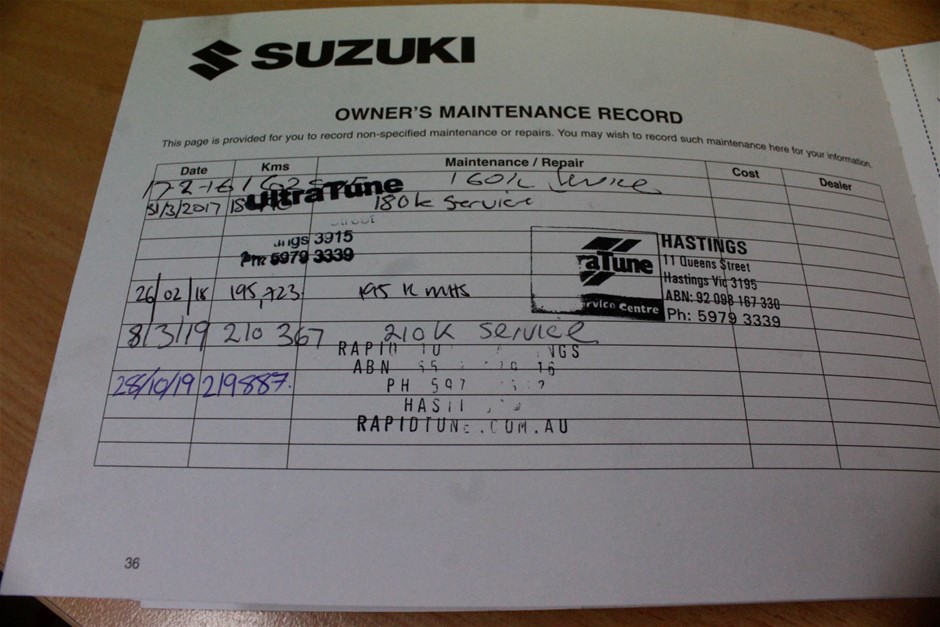 SUZUKI
OWNER'S MAINTENANCE RECORD
This page is provided for you to record non-specified maintenance or repairs. You may wish to record such maintenance here for your information.
Date Kms Maintenance / Repair Cost Dealer
17-2-16 UltraTune 160k Service
31/3/2017 180k Service
ngs 3915
Ph: 5979 3339
raTune
ervice Centre
HASTINGS
11 Queens Street
Hastings Vic 3195
ABN: 92 098 167 330
Ph: 5979 3339
26/02/18 195,723
8/3/19 210 367 210k Service
RAPID NGS
ABN
PH 597
28/10/19 219887.
RAPIDTUNE.COM.AU
36